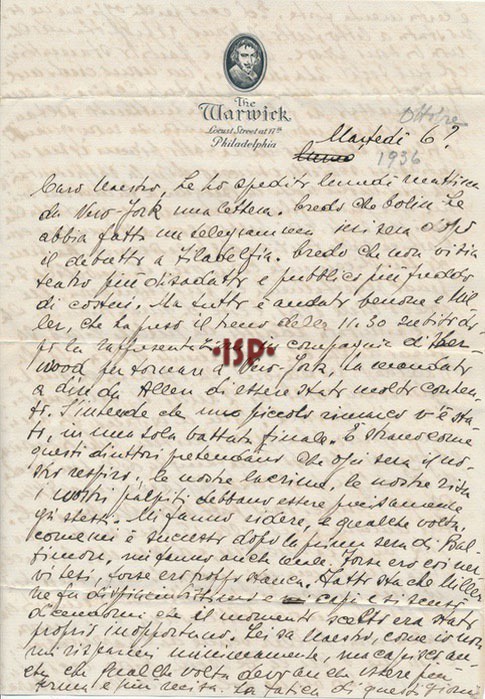 The
Warwick
Locust Street at 17th
Philadelphia
Ottobre
Martedì 6?
1936
Caro Maestro, Le ho spedito lunedì mattina
da New-York una lettera. Credo che Colin Le
abbia fatto un telegramma ieri sera dopo
il debutto a Filadelfia. Credo che non vi sia
teatro più disadatto e pubblico più freddo
di costui. Ma tutto è andato benone e Mil
ler, che ha preso il treno delle 11.30 subito do
po la rappresentazione in compagnia di
wood per tornare a New-York, ha mandato
a dire da Allen di essere stato molto conten
to. S'intende che un piccolo rimarco v'è sta
to, in una sola battuta finale. È strano come
questi direttori pretendano che ogni sera il no
stro respiro, le nostre lacrime, le nostre risa
i nostri palpiti debbano essere precisamente
gli stessi. Mi fanno ridere, e qualche volta,
come mi è successo dopo la prima sera di Bal
timora, mi fanno anche male. Forse ero coi ner
vi tesi, forse ero troppo stanca. Fatto sta che Miller
ne fu dispiacentissimo e capì e si scusò
dicendomi che il momento scelto era stato
proprio inopportuno. Lei sa Maestro, come io non
mi risparmi minimamente, ma capisco an
che che qualche volta devo anche essere più
ferma e più decisa. La fatica di questi giorni
ISP